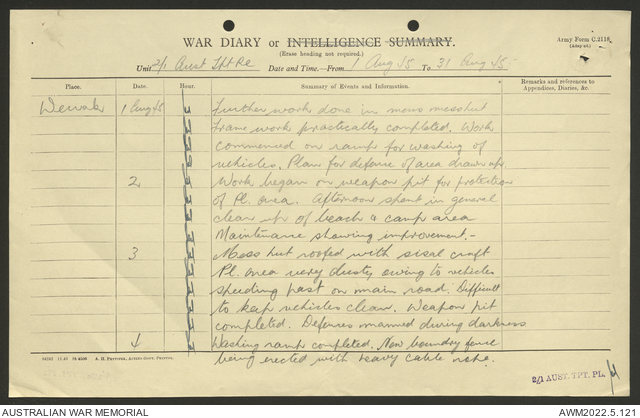 WAR DIARY or INTELLIGENCE SUMMARY.
(Erase heading not required.)
Army Form C.2118
(Adapted)
Unit 2/1 Aust Tpt Pl Date and Time.—From 1 Aug 45 To 31 Aug 45
Place. Date. Hour. Summary of Events and Information. Remarks and references to Appendices, Diaries, &c.
Wewak 1 Aug 45 Further work done in mens messhut
Frame work practically completed. Work
commenced on ramp for washing of
vehicles. Plans for defence of area drawn up.
2 Work began on weapon pit for protection
of Pl. area. Afternoon spent in general
clean up of beach & camp area
Maintenance showing improvement.-
3 Mess hut roofed with sisal craft
Pl. area very dusty owing to vehicles
speeding past on main road. Difficult
to keep vehicles clean. Weapon pit
completed. Defences manned during darkness
4 Washing ramp completed. New boundry fence
being erected with heavy cable rope.
A. H. Pettifer, Acting-Govt. Printer.
2/1 AUST. TPT. PL.
AUSTRALIAN WAR MEMORIAL
AWM2022.5.121